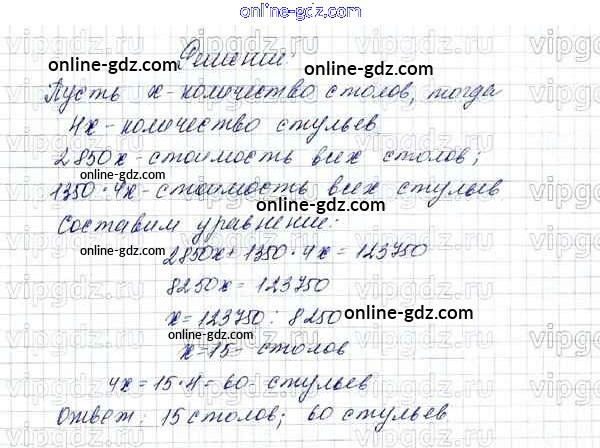 online-gdz.com
Решение:
online-gdz.com online-gdz.com
Пусть х - количество столов, тогда
4х - количество стульев
online-gdz.com
2850х - стоимость всех столов;
1350·4х - стоимость всех стульев
online-gdz.com
Составим уравнение:
online-gdz.com
2850х + 1350·4х = 123750
online-gdz.com
8250х = 123750
х = 123750 : 8250
online-gdz.com
х = 15 - столов
online-gdz.com
4х = 15·4 = 60 - стульев
online-gdz.com
Ответ: 15 столов; 60 стульев